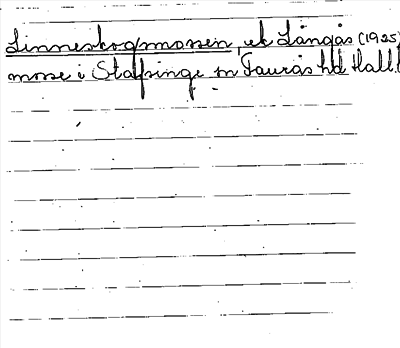 Linneskogmossen, ek Långås (1925)
mosse i Stafsinge sn Faurås hd Hall.